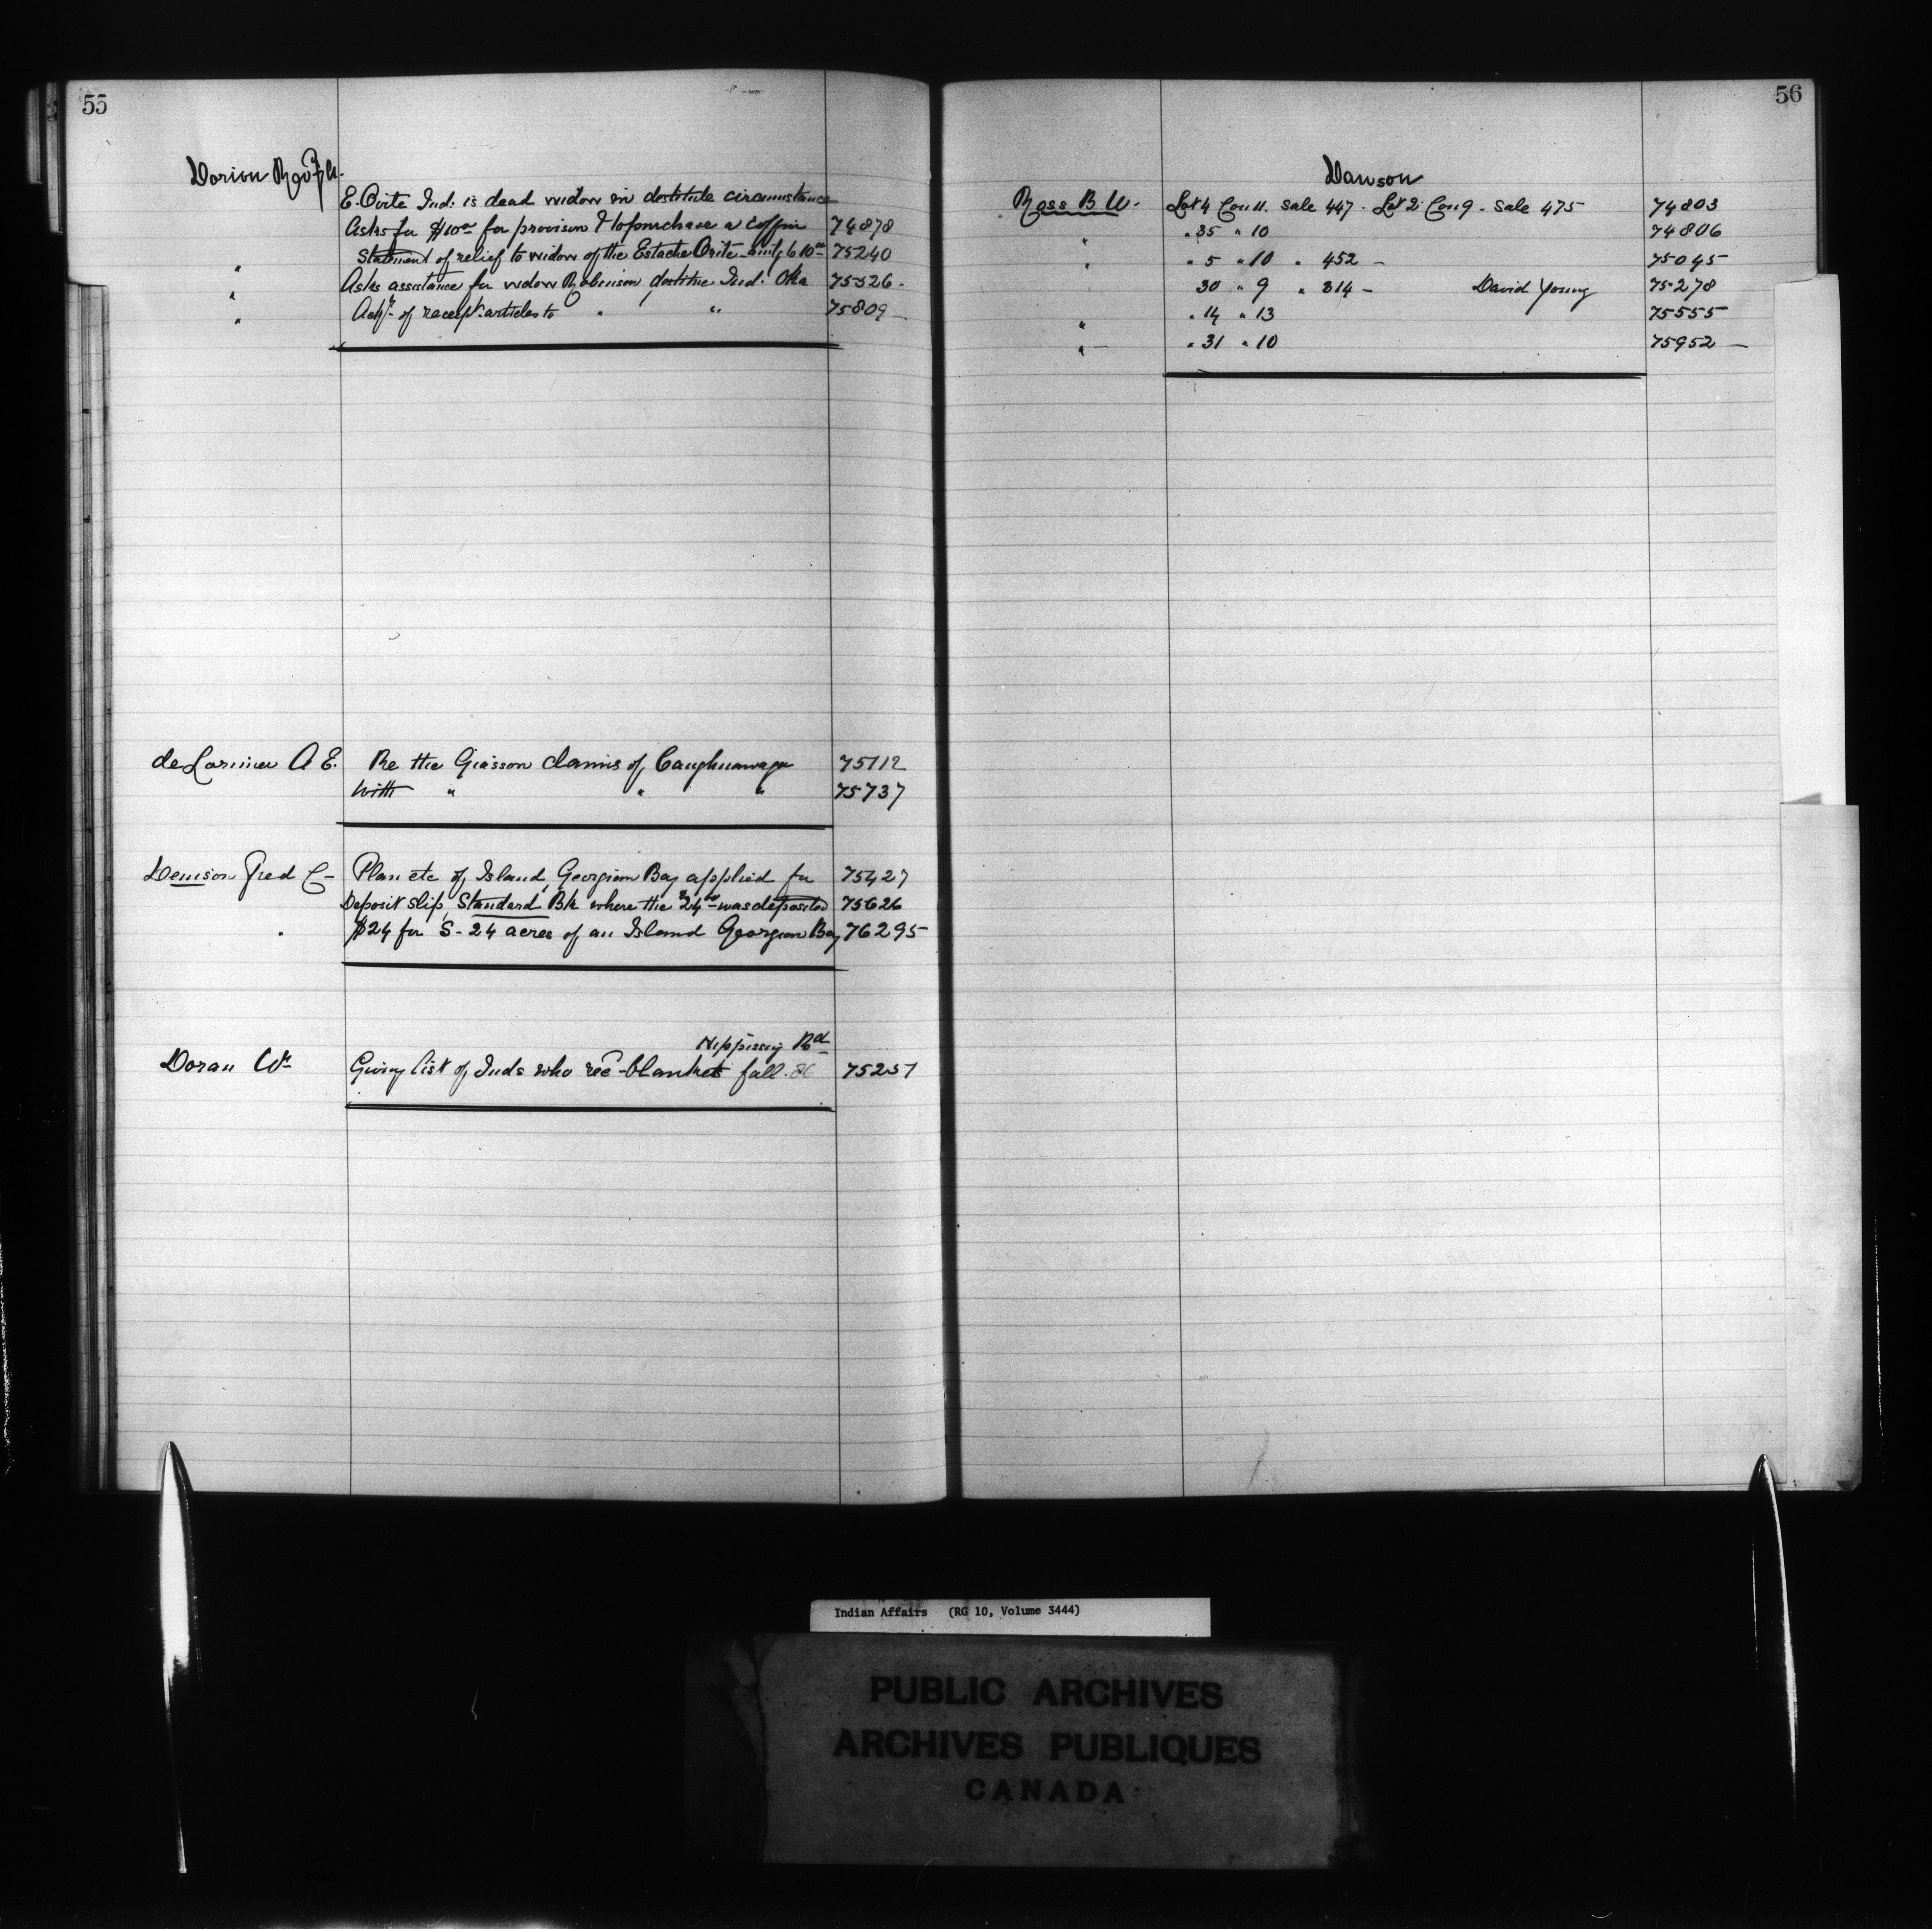 55
Dorion Rev
E. Orite Ind. is dead widow in destitute circumstance
Asks for $10 00 for provision & to purchase a coffin 74878
" Statement of relief to widow of the Estache Orite 10 00 75240
" Asks assistance for widow Robinson destitue Ind. Oka 75526.
" of receipt articles to " " 75809
de Lorimier A E. Re the Giasson claims of Caughnawaga 75112
With " " " 75737
Denison Fred C Plan etc of Island, Georgian Bay applied for 75427
Deposit slip, Standard Bk where the $24 00 was deposited 75626
" $24 for S- 24 acres of an Island Georgian Bay 76295
Nippissing Bd
Doran Wm Giving list of Inds who recd blankets fall. 75257
56
Dawson
Ross B W. Lot 4 Con 11. Sale 447. Lot 2 Con 9. Sale 475 74803
" " 35 " 10 74806
" " 5 " 10 " 452 - 75045
30 " 9 " 314 - David Young 75278
" " 14 " 13 75555
" " 31 " 10 75952
Indian Affairs (RG 10, Volume 3444)
PUBLIC ARCHIVES
ARCHIVES PUBLIQUES
CANADA